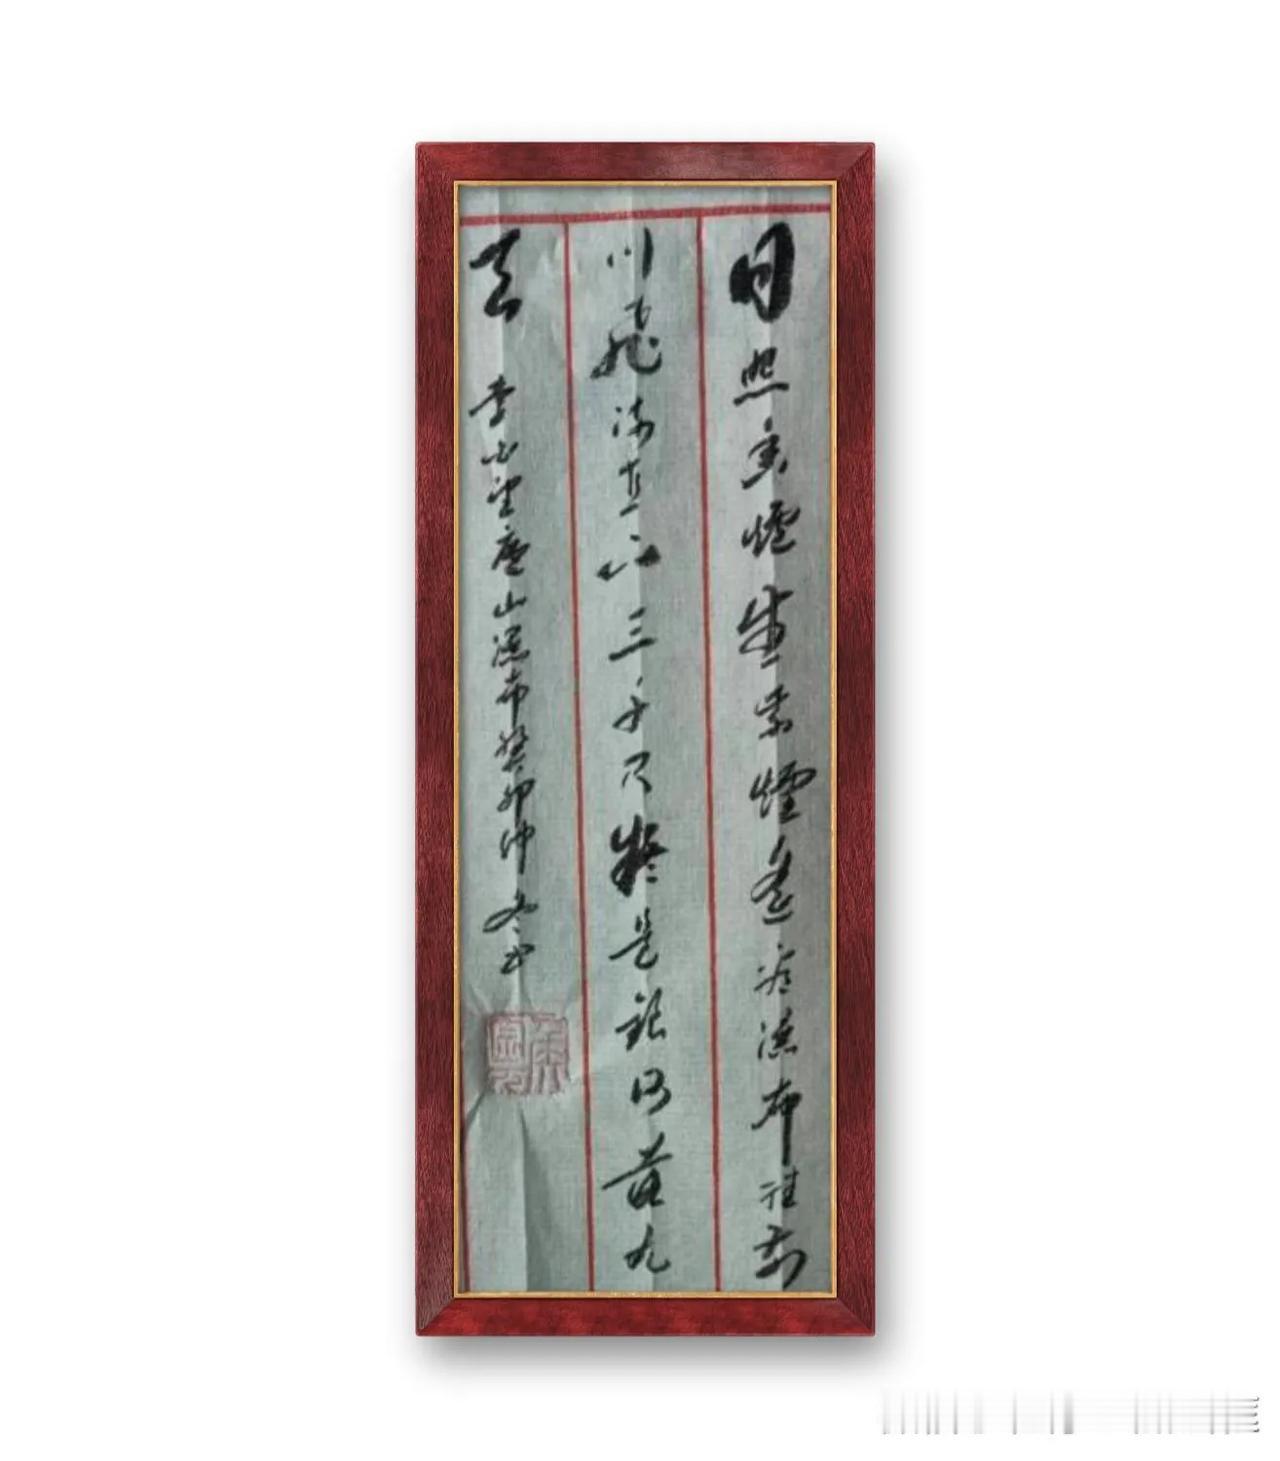 日照香爐生紫煙遙看瀑布挂前
川飛流直下三千尺疑是銀河落九
天 李白望廬山瀑布癸卯仲冬书